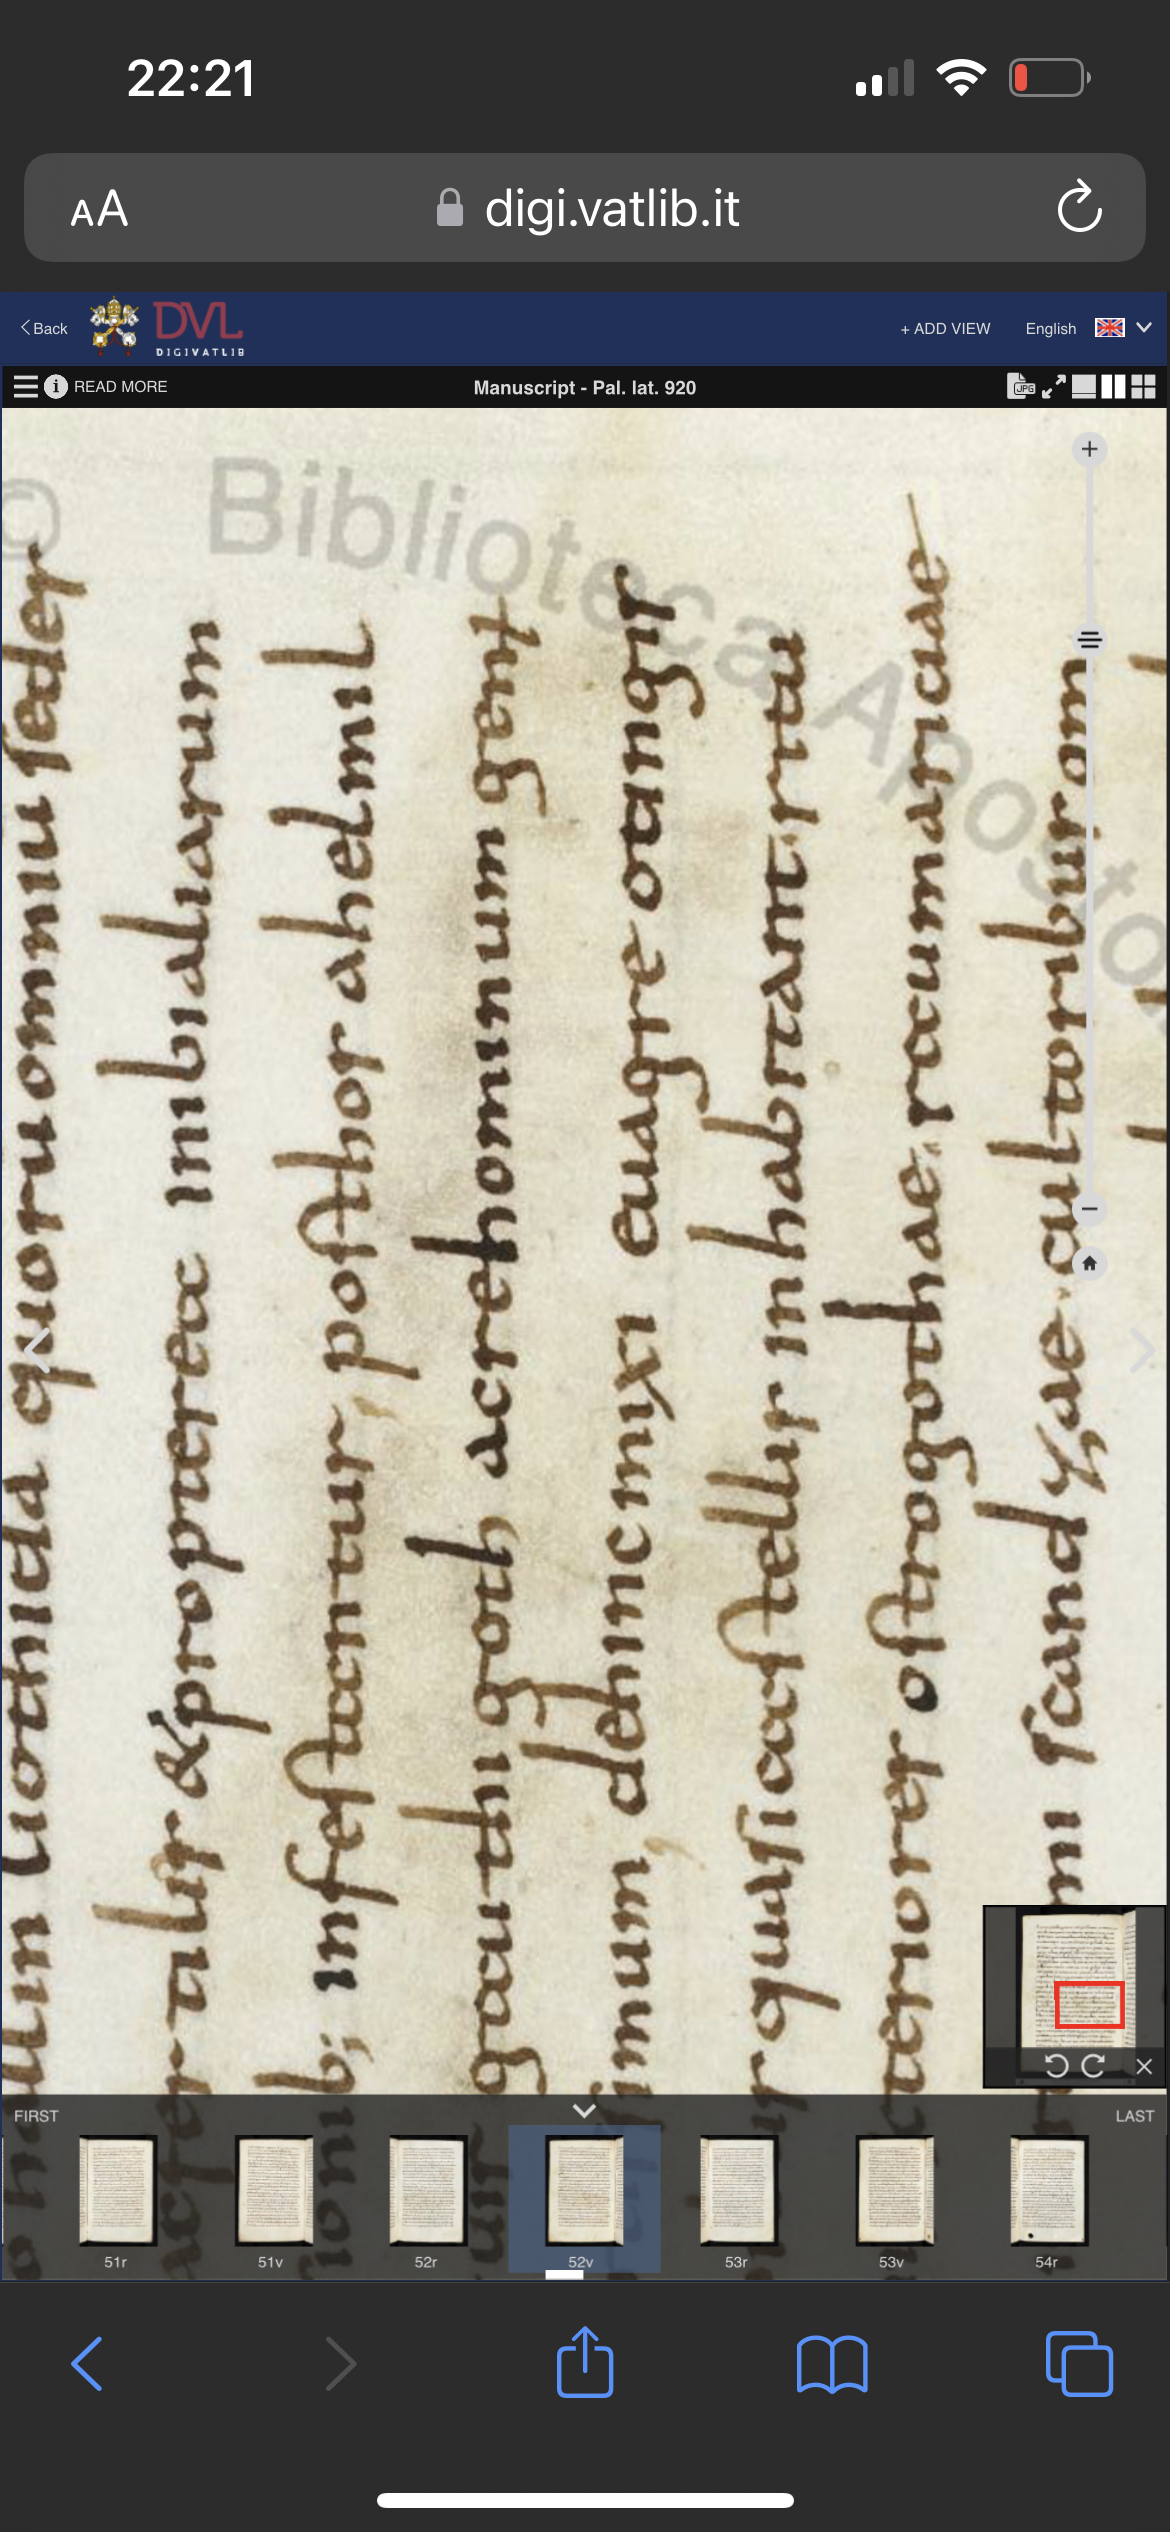 22:21
AA digi.vatlib.it
Back
DVL
DIGIVATLIB
+ ADD VIEW English
READ MORE Manuscript - Pal. lat. 920 JPG
© Biblioteca Aposto
llin uothida quoru omniu sedes
talis & propterea inibi aliarum
b; infestantur, post hos ahelmil
gauthigoth acre hominum gent
simum, dehinc mixi euagre otangis
s quasi castellis inhabitant ritu
teriores ostrogothae raumaricae
mi scandzae cultoribus om
FIRST LAST
51r 51v 52r 52v 53r 53v 54r